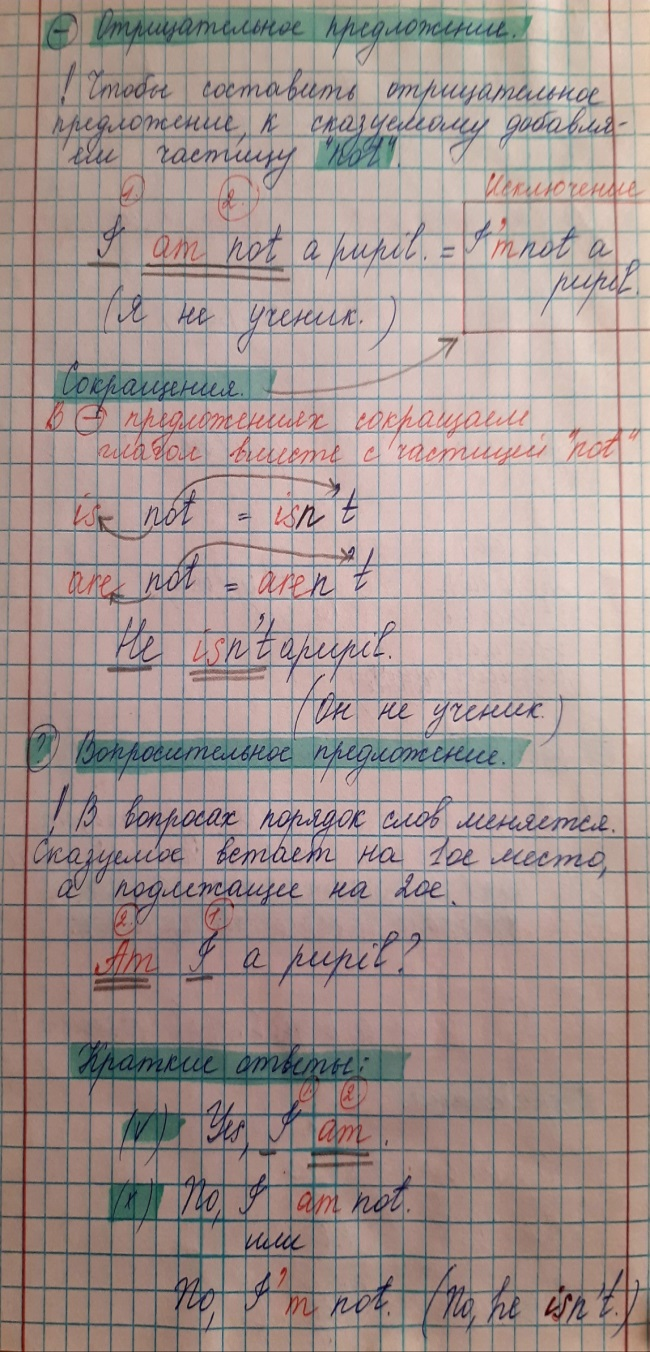 (−) Отрицательное предложение.
! Чтобы составить отрицательное
предложение, к сказуемому добавля-
ем частицу "not".
Исключение
1. 2.
I am not a pupil. = I'm not a
pupil.
(Я не ученик.)
Сокращения.
В (−) предложениях сокращаем
глагол вместе с частицей "not"
is not = isn't
are not = aren't
He isn't a pupil.
(Он не ученик.)
(?) Вопросительное предложение.
! В вопросах порядок слов меняется.
Сказуемое встаёт на 1ое место,
а подлежащие на 2ое.
2. 1.
Am I a pupil?
Краткие ответы:
1. 2.
(v) Yes, I am.
(x) No, I am not.
или
No, I'm not. (No, he isn't.)